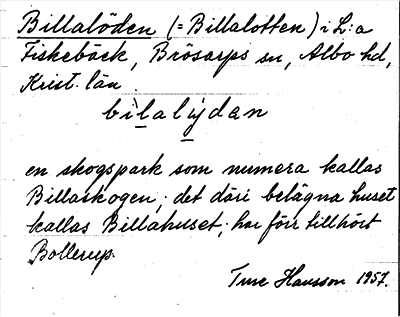 Billalöden (= Billalotten) i L:a
Fiskebäck, Brösarps sn, Albo hd,
Krist. län.
bilalijdan
en skogspark som numera kallas
Billaskogen; det däri belägna huset
kallas Billahuset; har förr tillhört
Bollerup.
Ture Hansson 1957.